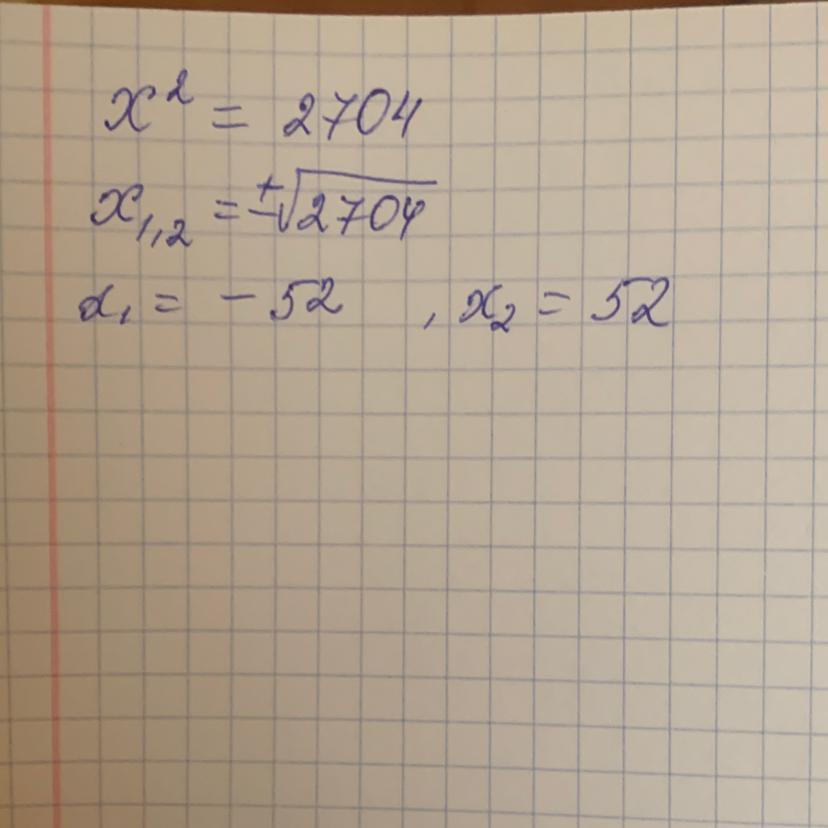 x² = 2704
x₁,₂ = ±√2704
x₁ = - 52 , x₂ = 52